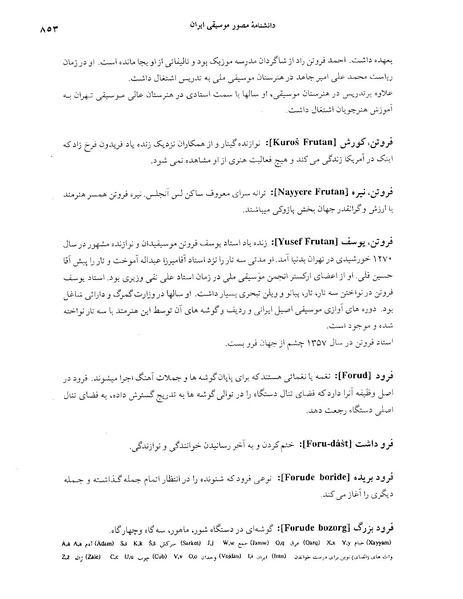 دانشنامهٔ مصور موسیقی ایران
۸۵۳
بعهده داشت. احمد فروتن راد از شاگردان مدرسه موزیک بود و تالیفاتی از او بجا مانده است. او در زمان
ریاست محمد علی امیر جاهد در هنرستان موسیقی ملی به تدریس اشتغال داشت.
علاوه برتدریس در هنرستان موسیقی، او سالها با سمت استادی در هنرستان عالی موسیقی تهران به
آموزش هنرجویان اشتغال داشت.
فروتن، کورش [Kuroš Frutan]: نوازنده گیتار و از همکاران نزدیک زنده یاد فریدون فرخ زاد که
اینک در آمریکا زندگی می‌کند و هیچ فعالیت هنری از او مشاهده نمی شود.
فروتن، نیره [Nayyere Frutan]: ترانه سرای معروف ساکن لس آنجلس. نیره فروتن همسر هنرمند
با ارزش و گرانقدر جهان بخش پازوکی میباشند.
فروتن، یوسف [Yusef Frutan]: زنده یاد استاد یوسف فروتن موسیقیدان و نوازنده مشهور در سال
۱۲۷۰ خورشیدی در تهران بدنیا آمد. او مدتی سه تار را نزد استاد آقامیرزا عبداله آموخت و تار را پیش آقا
حسین قلی. او از اعضای ارکستر انجمن موسیقی ملی در زمان استاد علی نقی وزیری بود. استاد یوسف
فروتن در نواختن سه تار، تار، پیانو و ویلن تبحری بسیار داشت. او سالها در وزارت گمرگ و دارائی شاغل
بود. دوره های آوازی موسیقی اصیل ایرانی و ردیف و گوشه های آن توسط این هنرمند با سه تار نواخته
شده و موجود است.
استاد فروتن در سال ۱۳۵۷ چشم از جهان فرو بست.
فرود [Forud]: نغمه یا نغماتی هستند که برای پایان گوشه ها و جملات آهنگ اجرا میشوند. فرود در
اصل وظیفه آنرا دارد که فضای تنال دستگاه را در توالی گوشه ها به تدریج گسترش داده، به فضای تنال
اصلی دستگاه رجعت دهد.
فرو داشت [Foru-dâšt]: ختم کردن و به آخر رسانیدن خوانندگی و نوازندگی.
فرود بریده [Forude boride]: نوعی فرود که شنونده را در انتظار اتمام جمله گذاشته و جمله
دیگری را آغاز می‌کند.
فرود بزرگ [Forude bozorg]: گوشه‌ای در دستگاه شور، ماهور، سه گاه و چهارگاه.